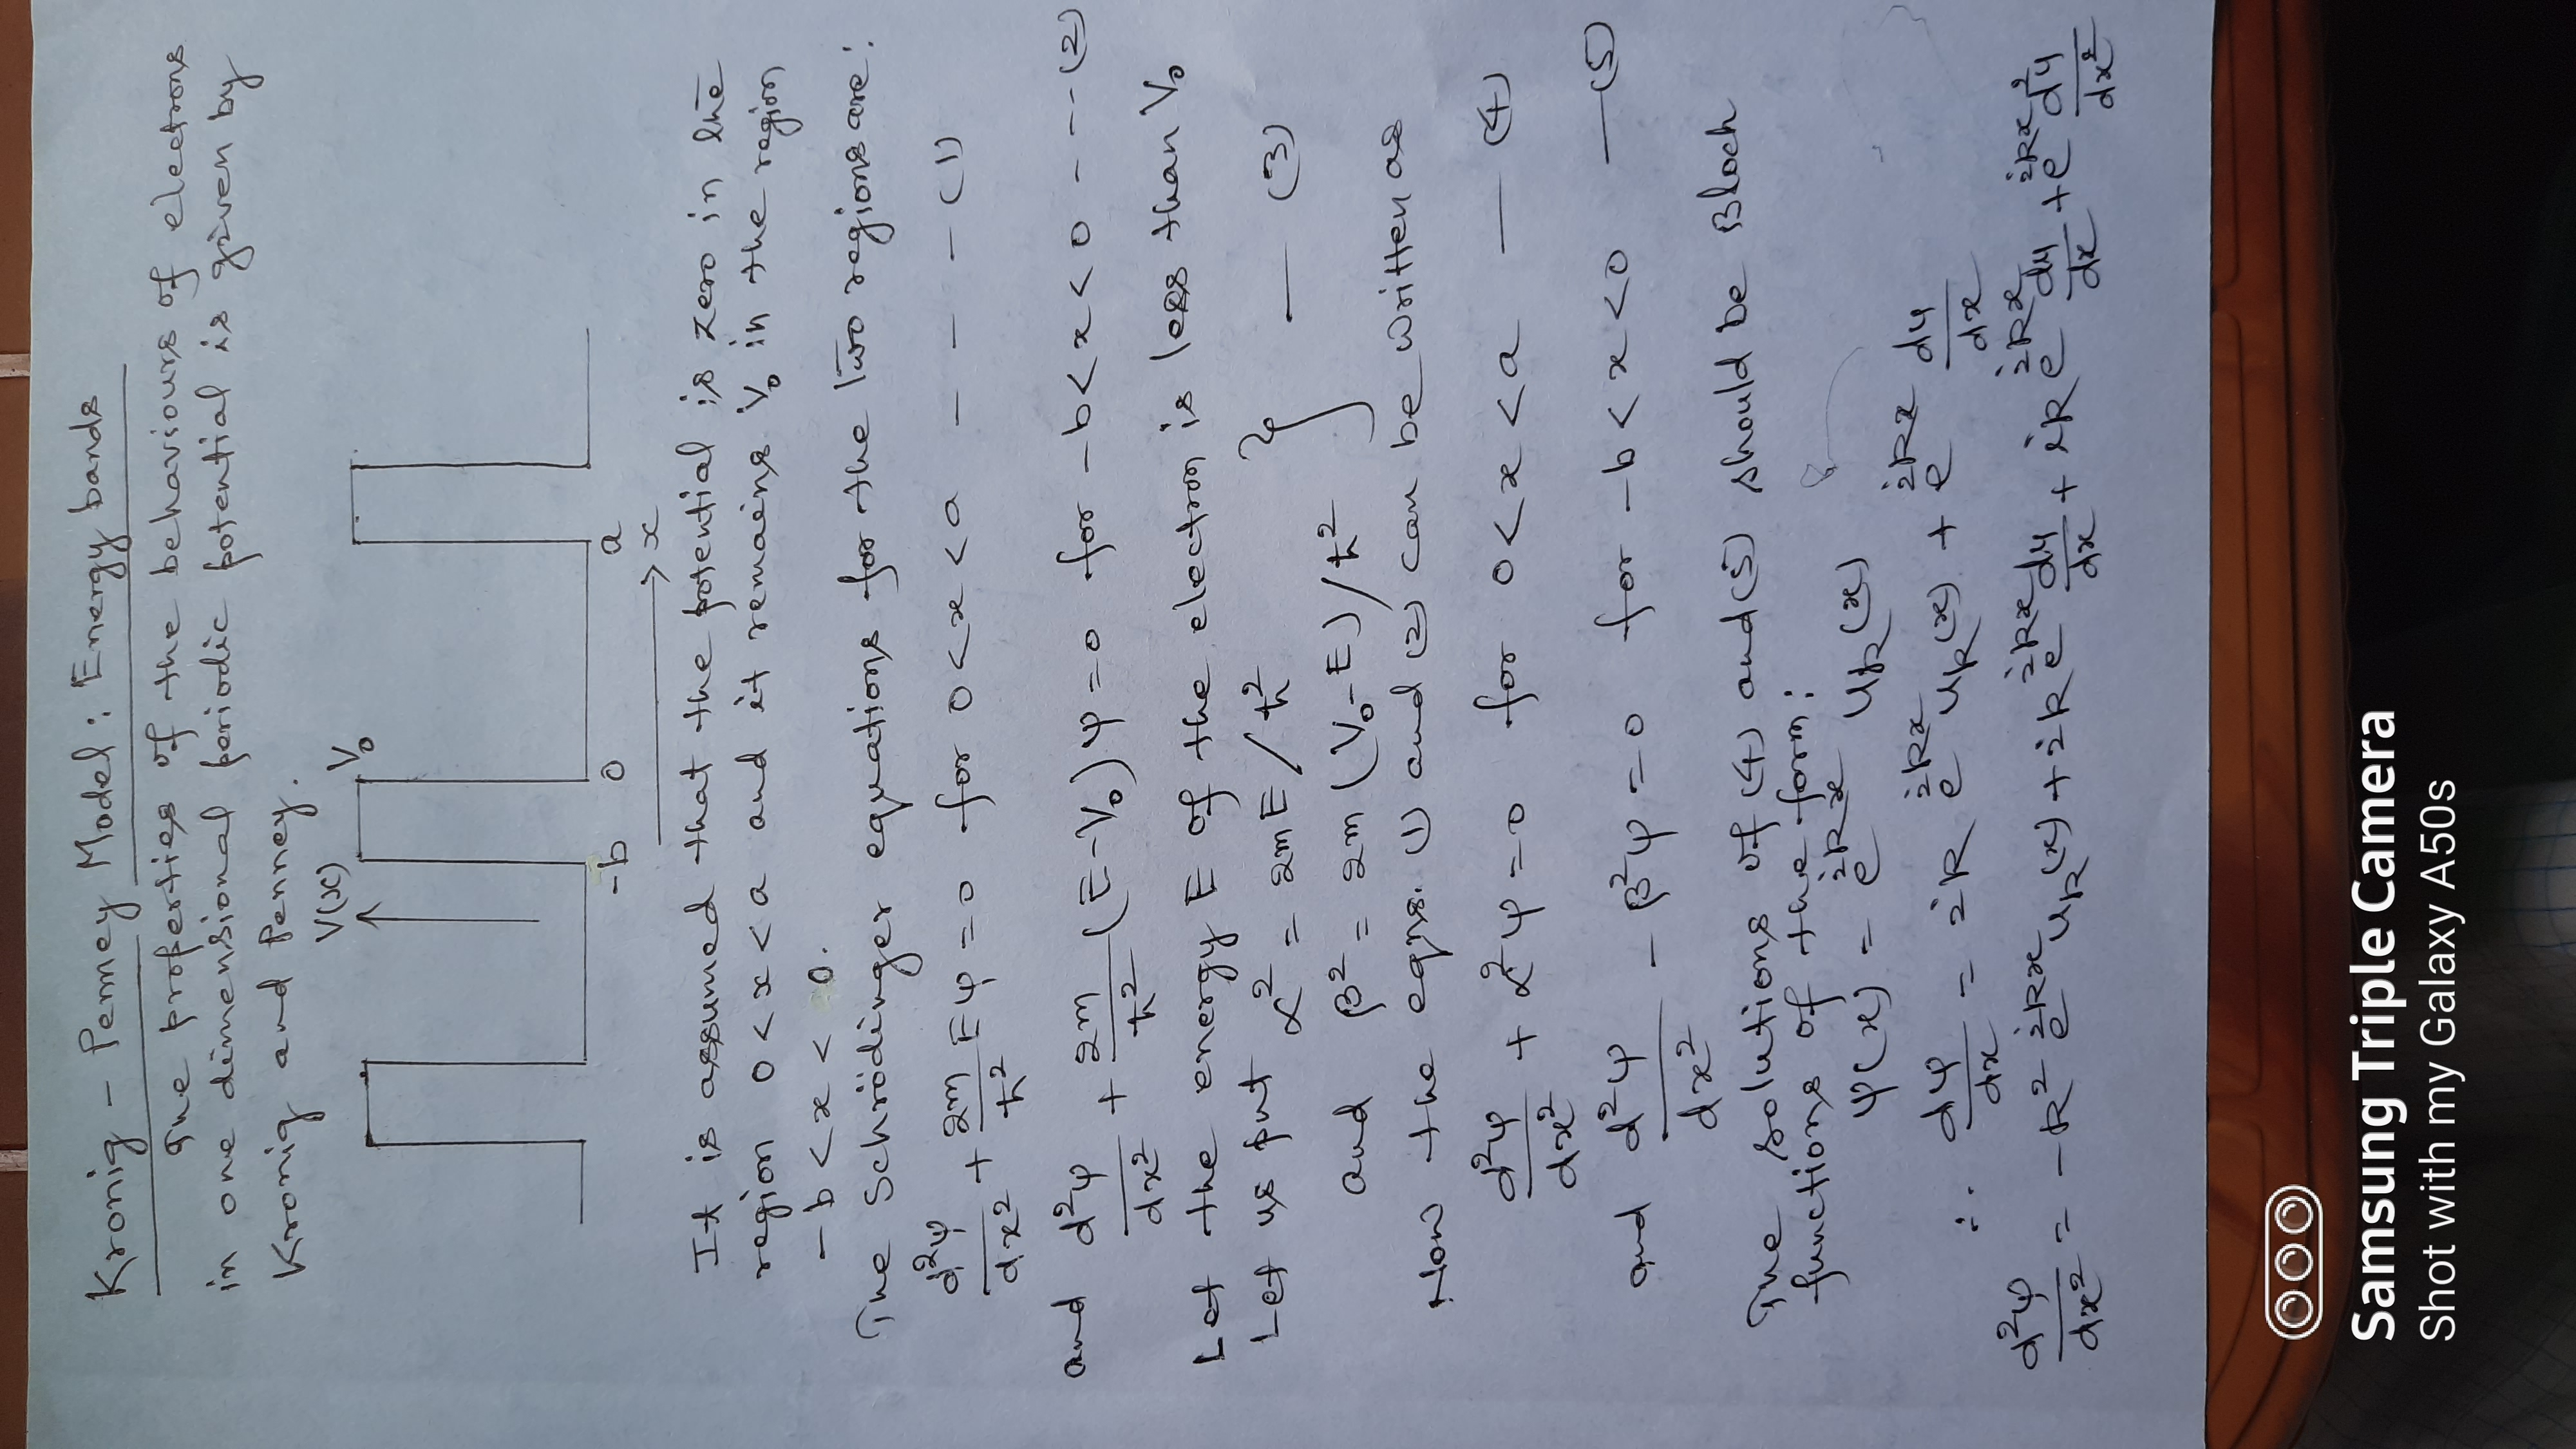 Kronig - Penney Model : Energy bands
The properties of the behaviours of electrons
in one dimensional periodic potential is given by
Kronig and Penney.
V(x)
V₀
-b 0 a
x
It is assumed that the potential is zero in the
region 0 < x < a and it remains V₀ in the region
-b < x < 0.
The Schrödinger equations for the two regions are:
d²ψ/dx² + 2m/ħ² Eψ = 0 for 0 < x < a - - - (1)
and d²ψ/dx² + 2m/ħ² (E-V₀)ψ = 0 for -b < x < 0 - - - (2)
Let the energy E of the electron is less than V₀
Let us put α² = 2mE/ħ²
and β² = 2m(V₀-E)/ħ² } — (3)
Now the eqns. (1) and (2) can be written as
d²ψ/dx² + α²ψ = 0 for 0 < x < a — (4)
and d²ψ/dx² - β²ψ = 0 for -b < x < 0 — (5)
The solutions of (4) and (5) should be Bloch
functions of the form:
ψ(x) = e^{ikx} u_k(x)
∴ dψ/dx = ik e^{ikx} u_k(x) + e^{ikx} du/dx
d²ψ/dx² = -k² e^{ikx} u_k(x) + ik e^{ikx} du/dx + ik e^{ikx} du/dx + e^{ikx} d²u/dx²
Samsung Triple Camera
Shot with my Galaxy A50s